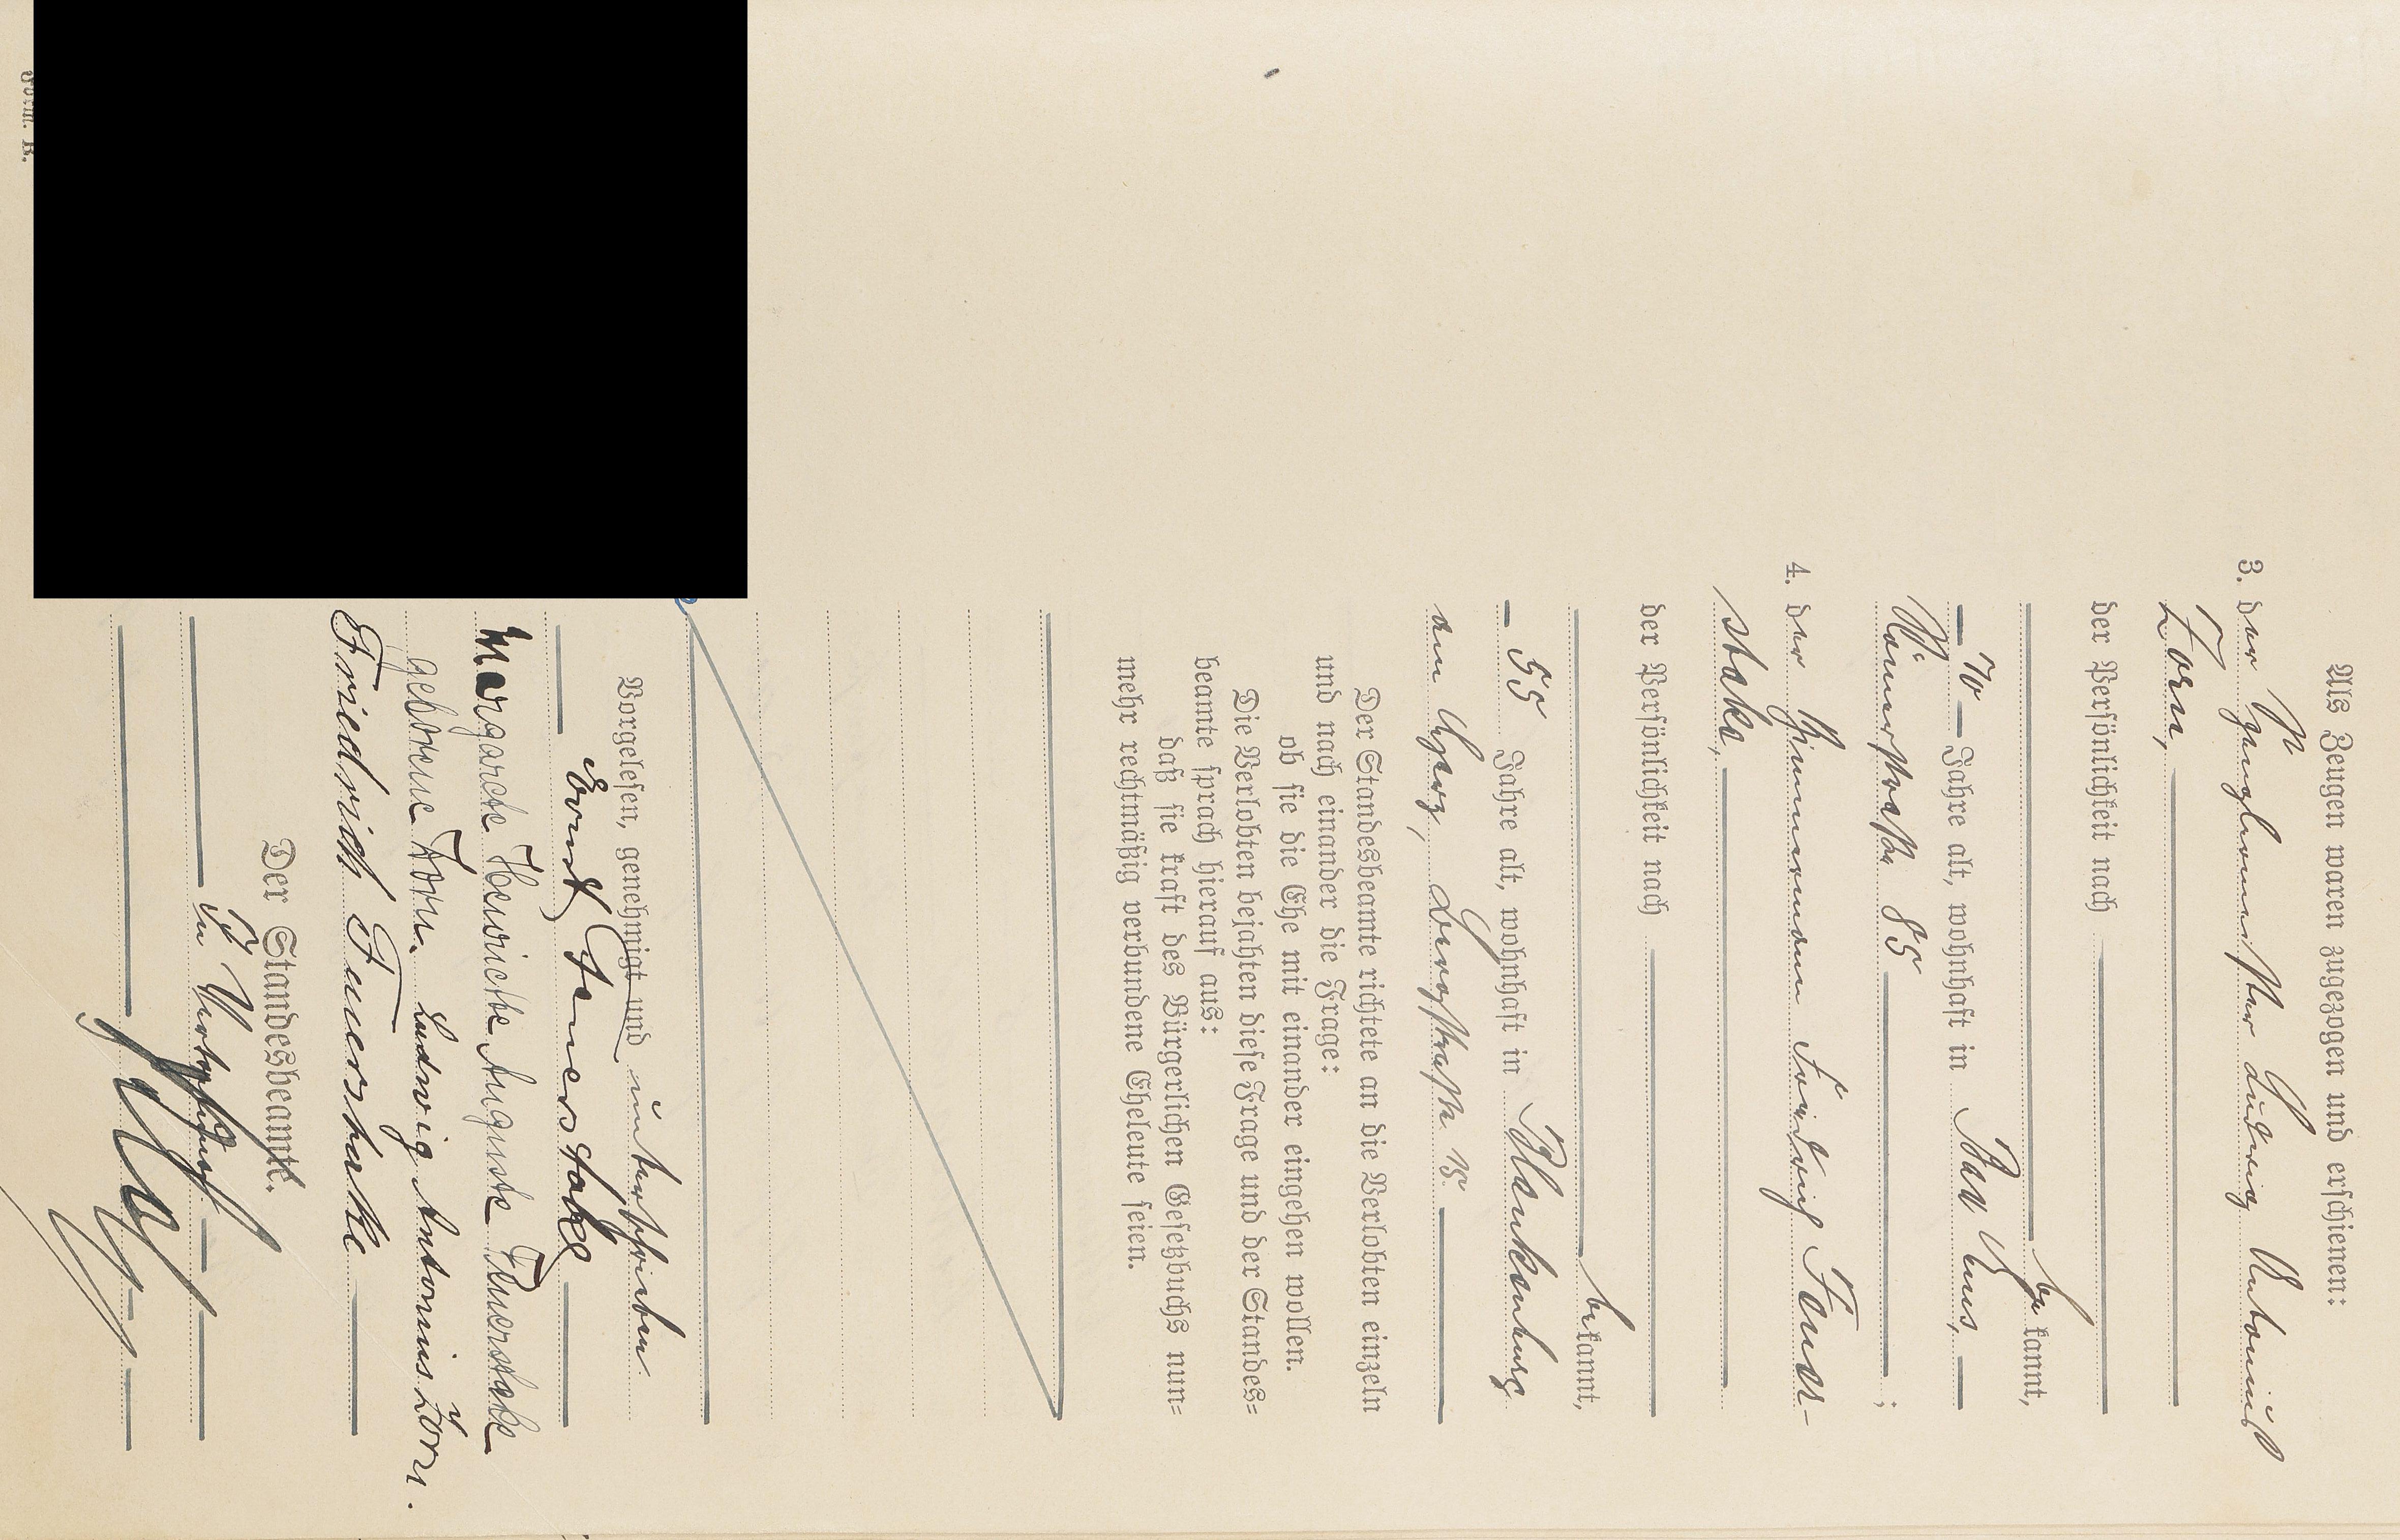 Als Zeugen waren zugezogen und erschienen:
3. der Zeughausmeister Ludwig Antonius
Zorn,
der Persönlichkeit nach
bekannt,
70 Jahre alt, wohnhaft in
85 ;
4. der Zimmermann Friedrich Feuer-
stake,
der Persönlichkeit nach
bekannt,
55 Jahre alt, wohnhaft in Blankenburg
am Harz, 15.
Der Standesbeamte richtete an die Verlobten einzeln
und nach einander die Frage:
ob sie die Ehe mit einander eingehen wollen.
Die Verlobten bejahten diese Frage und der Standes=
beamte sprach hierauf aus:
daß sie kraft des Bürgerlichen Gesetzbuchs nun=
mehr rechtmäßig verbundene Eheleute seien.
Vorgelesen, genehmigt und unterschrieben
Ernst Feuerstake
Margarete Henriette Auguste Feuerstake
geborene Zorn. Ludwig Antonius Zorn.
Friedrich Feuerstake
Der Standesbeamte.
In Vertretung
Form. B.